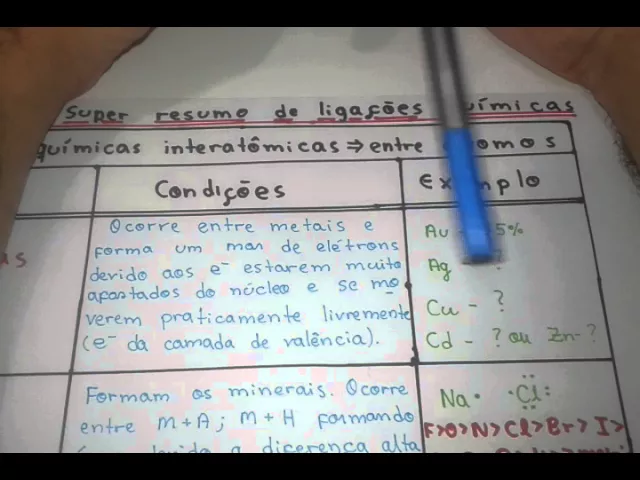 Super resumo de ligações químicas
químicas interatômicas ⇒ entre átomos
Condições
Exemplo
Ocorre entre metais e
forma um mar de elétrons
devido aos e⁻ estarem muito
afastados do núcleo e se mo
verem praticamente livremente
(e⁻ da camada de valência).
Au - 5%
Ag - ?
Cu - ?
Cd - ? ou Zn - ?
Formam os minerais. Ocorre
entre M+A; M+H formando
a diferença alta
Na• •Cl:
F>O>N>Cl>Br>I>